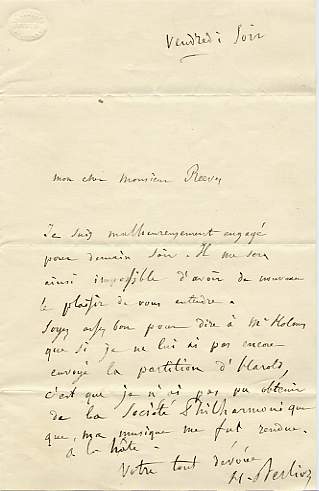 Vendredi Soir
mon cher Monsieur Reeves
Je suis malheureusement engagé
pour demain soir. Il me sera
ainsi impossible d'avoir de nouveau
le plaisir de vous entendre.
Soyez assez bon pour dire à Mr Holmes
que si je ne lui ai pas encore
envoyé la partition d'Harold,
c'est que je n'ai pas pu obtenir
de la Société Philharmonique
que, ma musique me fut rendue.
à la hâte
Votre tout dévoué
H. Berlioz